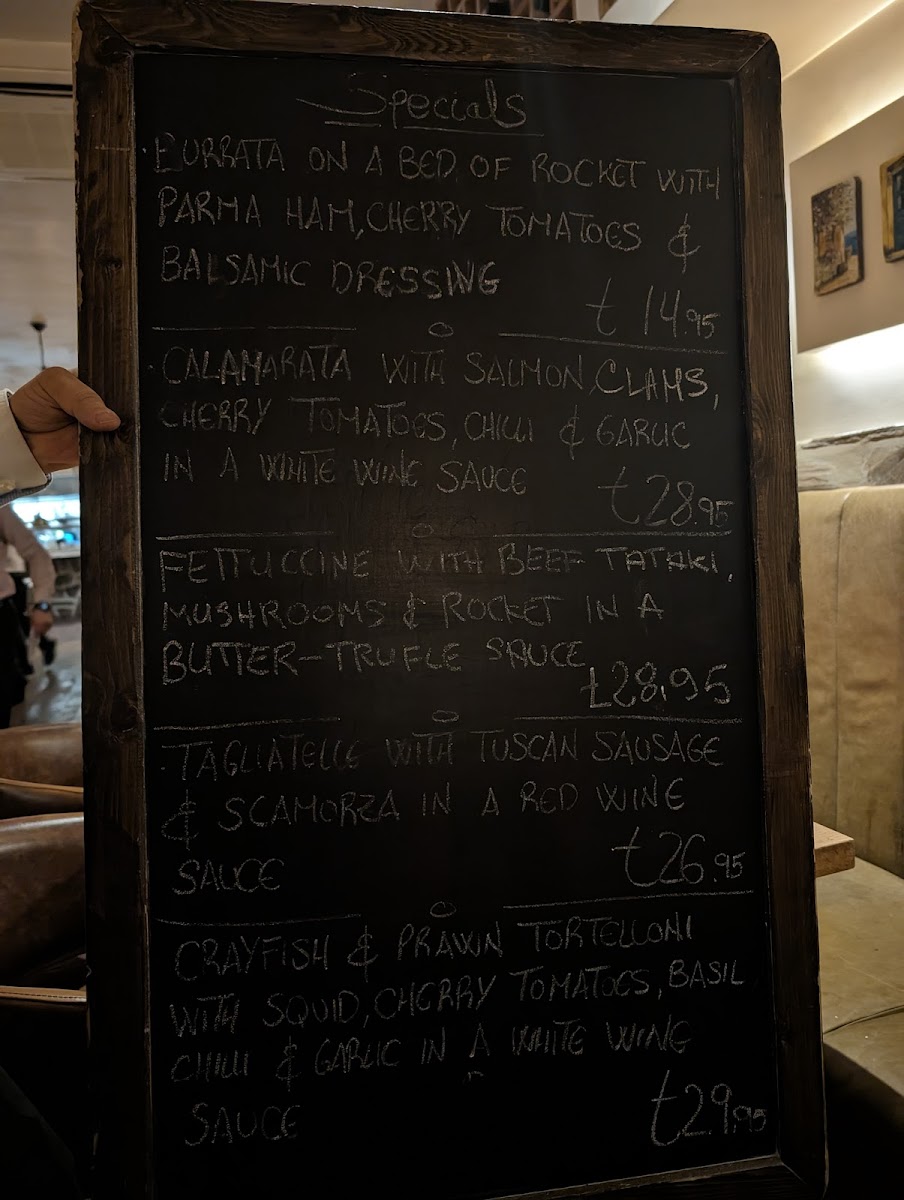 Specials
· BURRATA ON A BED OF ROCKET WITH
PARMA HAM, CHERRY TOMATOES &
BALSAMIC DRESSING
£14.95
· CALAMARATA WITH SALMON, CLAMS,
CHERRY TOMATOES, CHILLI & GARLIC
IN A WHITE WINE SAUCE
£28.95
FETTUCCINE WITH BEEF TATAKI,
MUSHROOMS & ROCKET IN A
BUTTER-TRUFLE SAUCE
£28.95
· TAGLIATELLE WITH TUSCAN SAUSAGE
& SCAMORZA IN A RED WINE
SAUCE
£26.95
CRAYFISH & PRAWN TORTELLONI
WITH SQUID, CHERRY TOMATOES, BASIL
CHILLI & GARLIC IN A WHITE WINE
SAUCE
£29.95